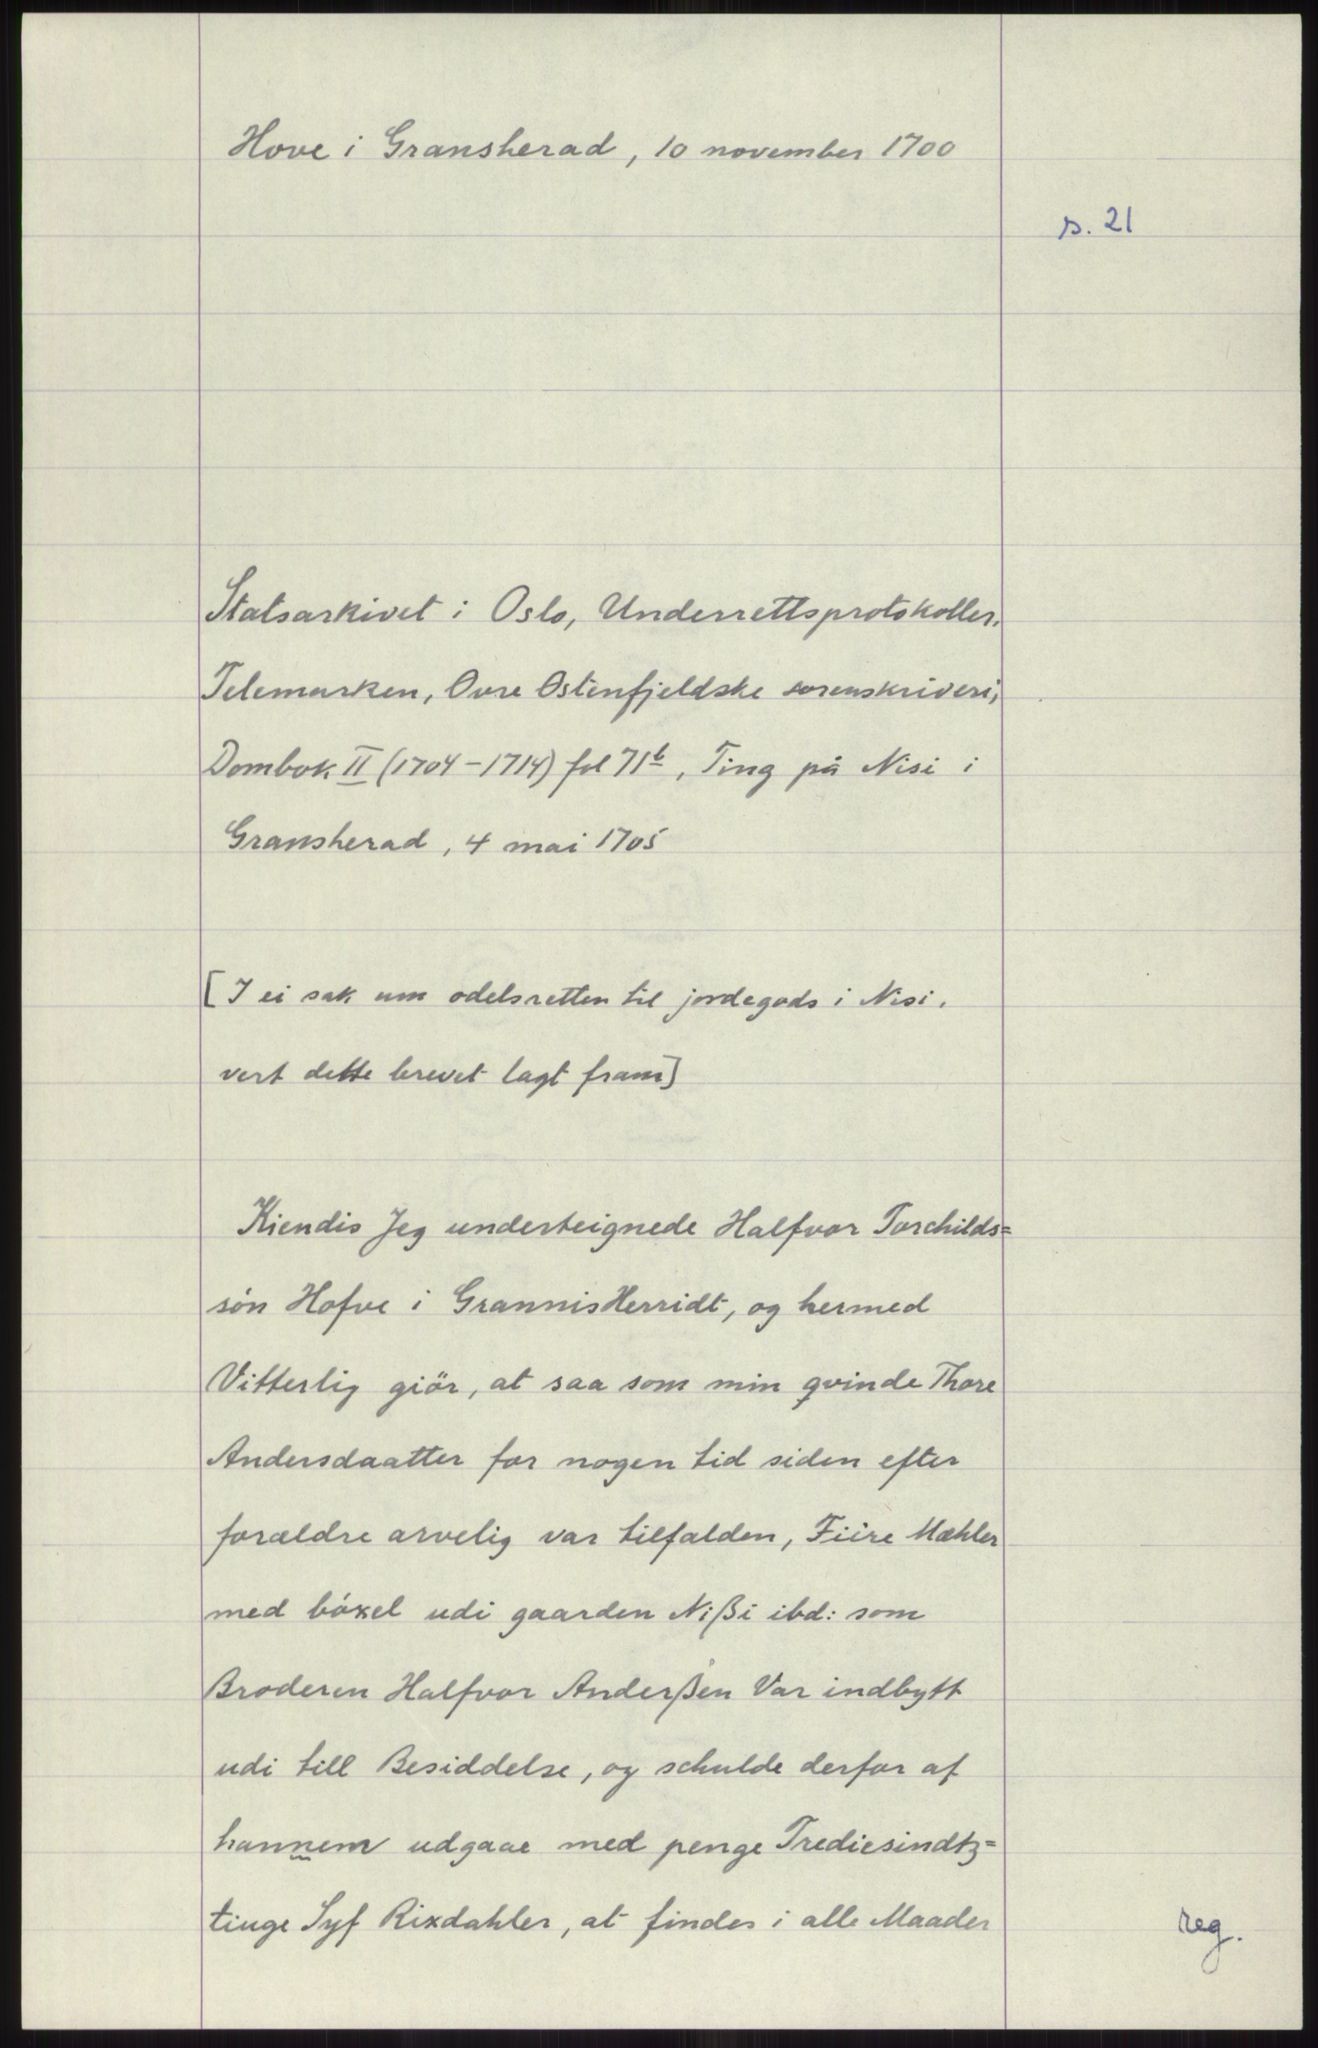 Hove i Gransherad, 10 november 1700
s. 21
Statsarkivet i Oslo, Underrettsprotokoller.
Telemarken, Øvre Østenfjeldske sorenskriveri,
Dombok II (1704-1714) fol 71b, Ting på Nisi i
Gransherad, 4 mai 1705
[I ei sak um odelsretten til jordegods i Nisi.
vert dette brevet lagt fram]
Kiendis Jeg underteignede Halfvor Torchilds=
søn Hofve i GrannisHerridt, og hermed
Vitterlig giör, at saa som min qvinde Thore
Andersdaatter for nogen tid siden efter
forældre arvelig var tilfalden, Fiire Mæhler
med böxel udi gaarden Nißi ibd: som
Broderen Halfvor Anderßen Var indbytt
udi till Besiddelse, og schulde derfor af
hannem udgaae med penge Trediesindtz=
tiuge Syf Rixdahler, at findes i alle Maader
reg.